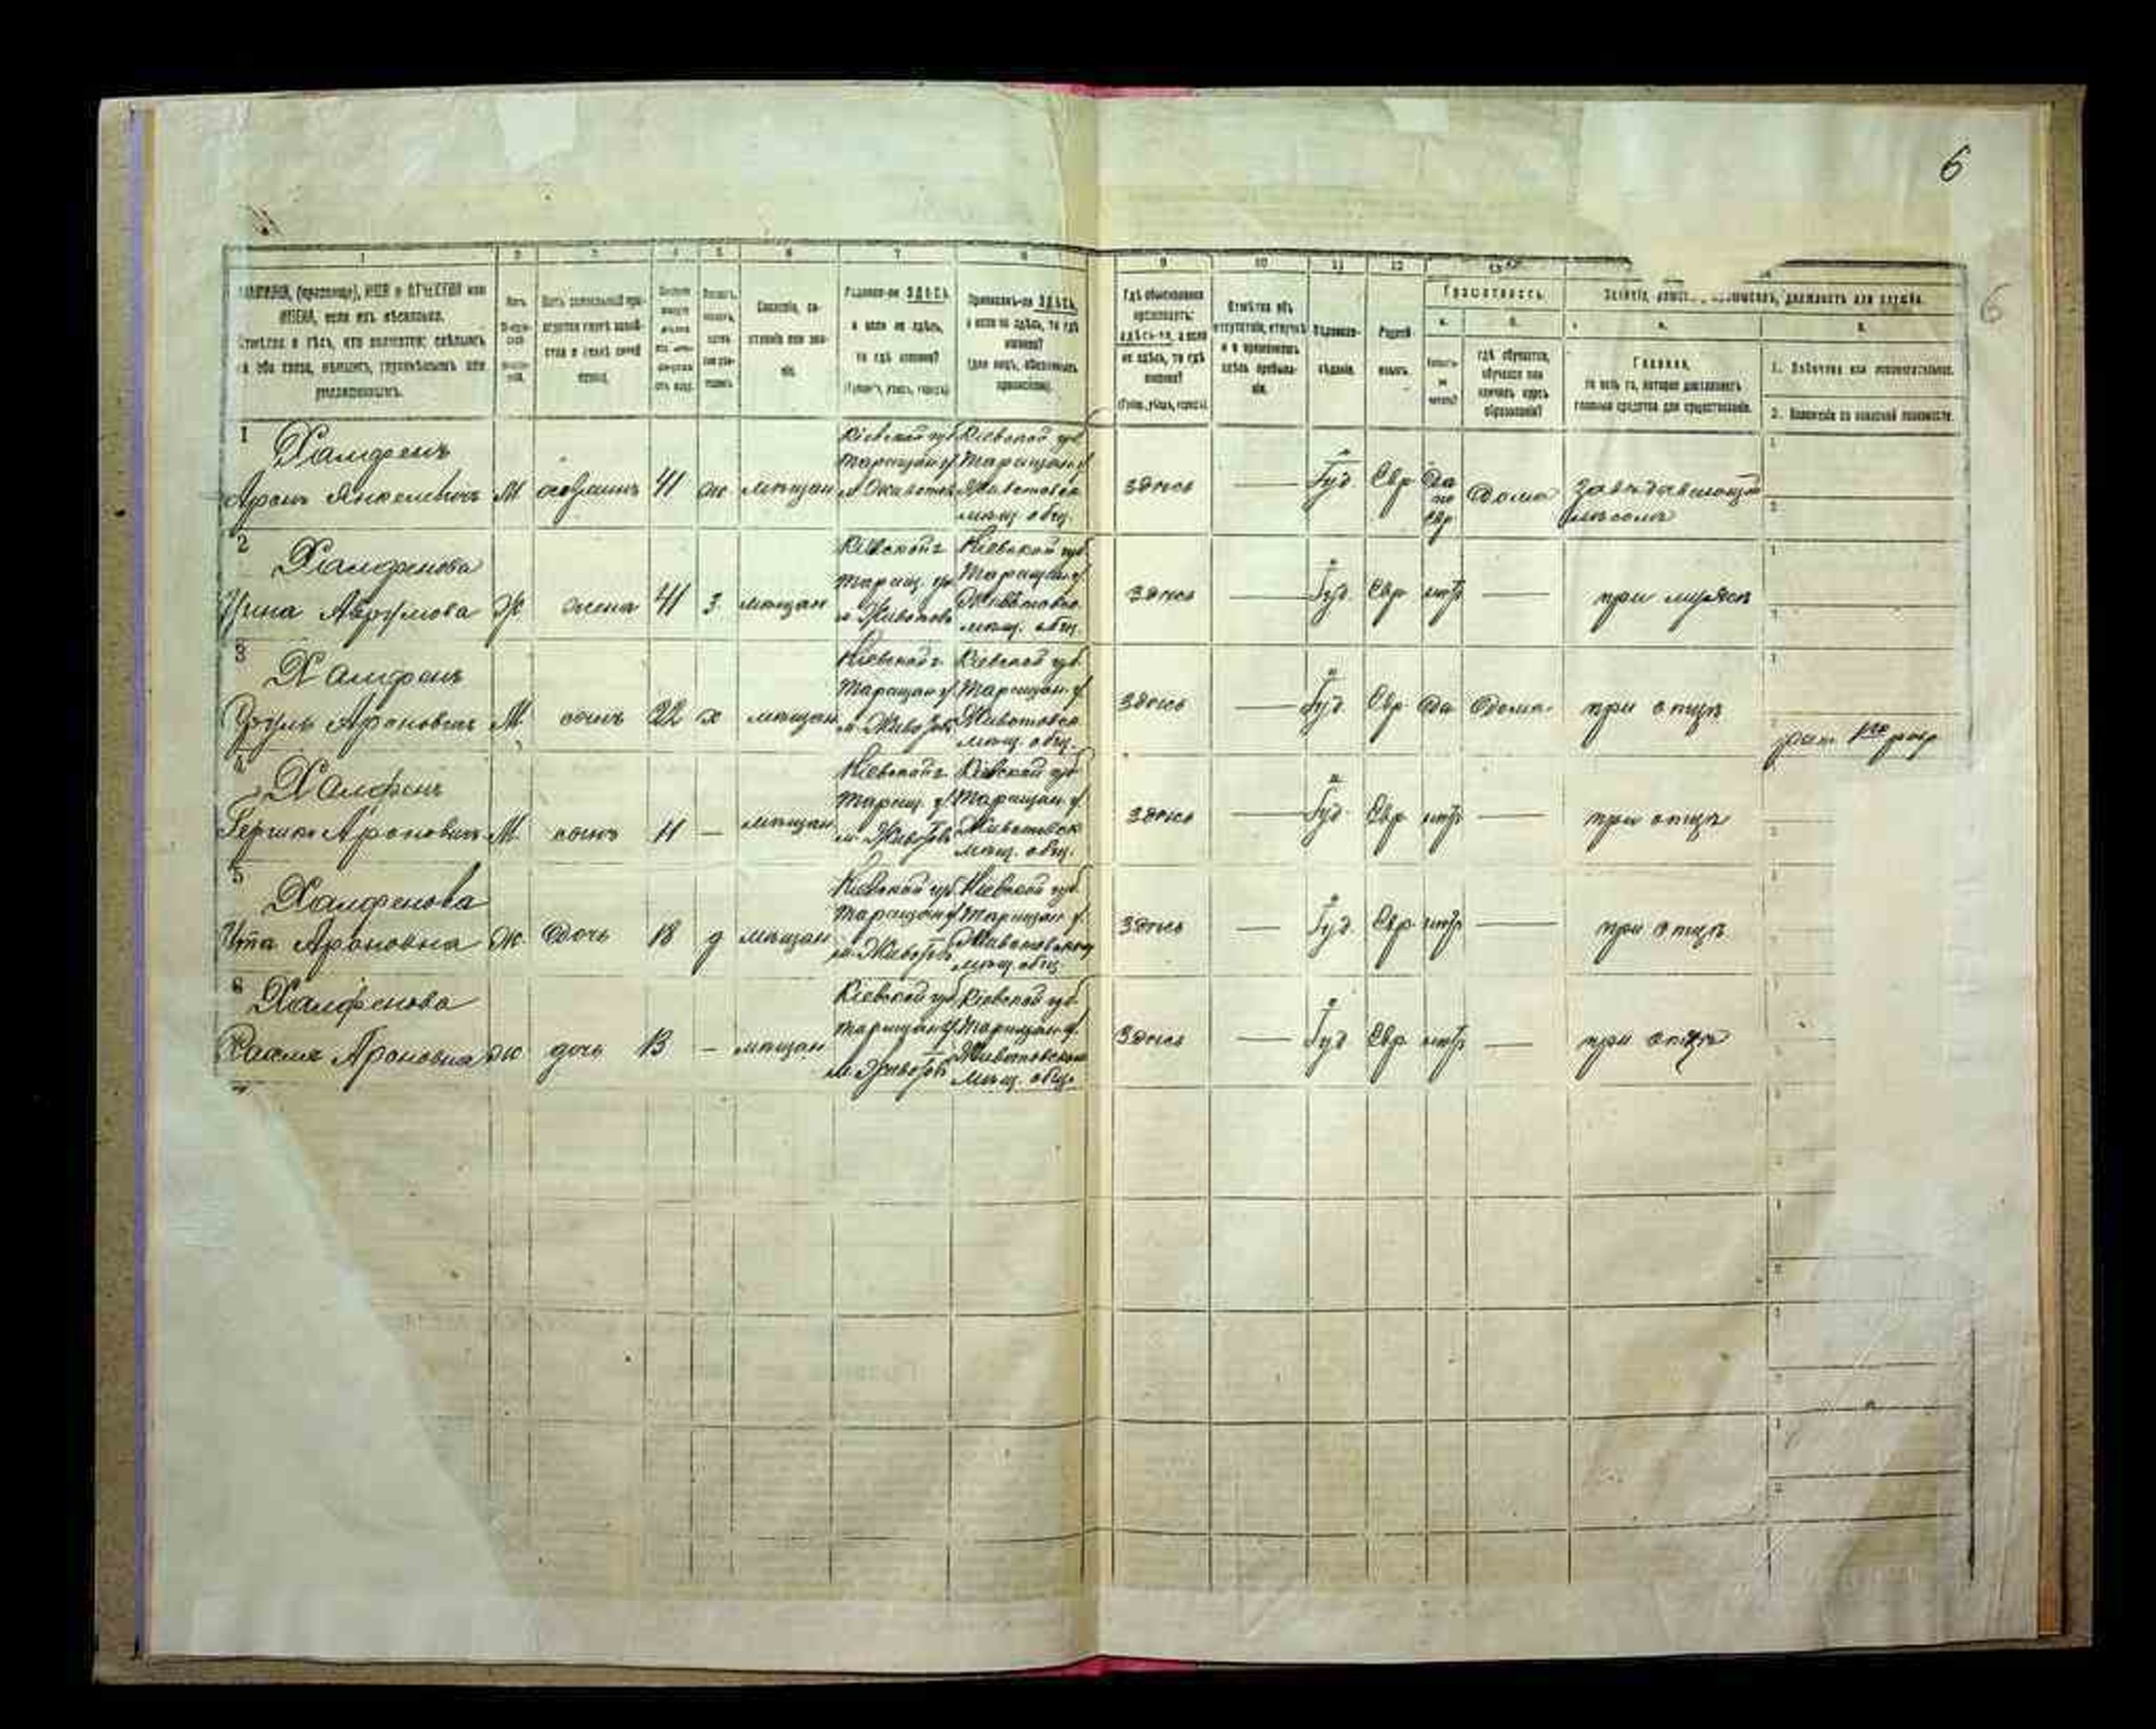 6
6
1 2 3 4 5 6 7 8 9 10 11 12 13 14
ФАМИЛІЯ, (прозвище), ИМЯ и ОТЧЕСТВО или
ИМЕНА, если ихъ нѣсколько.
Отмѣтка о тѣхъ, кто окажется: слѣпымъ
на оба глаза, нѣмымъ, глухонѣмымъ или
умалишеннымъ.
Полъ.
Сословіе, со-
стояніе или зва-
ніе.
Родился-ли ЗДѢСЬ,
а если не здѣсь,
то гдѣ именно?
(Губернія, уѣздъ, городъ)
Приписанъ-ли ЗДѢСЬ,
а если не здѣсь, то гдѣ
именно?
(для лицъ, обязанныхъ
припискою).
Гдѣ обыкновенно
проживаетъ:
здѣсь-ли, а если
не здѣсь, то гдѣ
именно?
(Губер., уѣздъ, городъ)
Отмѣтка объ
отсутствіи, отлучкѣ
и о временномъ
здѣсь пребыва-
ніи.
Вѣроиспо-
вѣданіе.
Родной
языкъ.
Грамотность.
а.
Умѣетъ-
ли
читать?
б.
гдѣ обучается,
обучался или
кончилъ курсъ
образованія?
Занятіе, ремесло, промыселъ, должность или служба.
а.
Главное,
то есть то, которое доставляетъ
главныя средства для существованія.
б.
1. Побочное или вспомогательное.
2. Положеніе по воинской повинности.
1 Халфенъ
Аронъ Янкелевичъ М хозяинъ 41 ж мѣщан
Кіевской губ
Таращан у.
м Животов
Кіевской губ
Таращан у.
Животовск.
мѣщ. общ.
здѣсь — Іуд. Евр Да
по
евр Дома Завѣдывающій
лѣсомъ
2 Халфенова
Авр­умова Ж жена 41 з мѣщан
Кіевской г
Таращ. у.
м Животов
Кіевской губ
Таращан. у.
Животовск.
мѣщ. общ.
здѣсь — Іуд. Евр нѣт — при мужѣ
3 Халфенъ
Ароновичъ М сынъ 22 х мѣщан
Кіевской г
Таращан у.
м. Животов
Кіевской губ.
Таращан. у.
Животовск.
мѣщ. общ.
здѣсь — Іуд. Евр Да Дома при отцѣ
4 Халфенъ
Гершко Ароновичъ М сынъ 11 — мѣщан
Кіевской г.
Таращ. у.
м. Животов
Кіевской губ
Таращан. у.
Животовск
мѣщ. общ.
здѣсь — Іуд. Евр нѣт — при отцѣ
5 Халфенова
Ита Ароновна Ж. Дочь 18 д мѣщан
Кіевской губ.
Таращан у.
м. Животов
Кіевской губ.
Таращан. у.
мѣщ. общ.
здѣсь — Іуд. Евр нѣт — при отцѣ
6 Халфенова
Ароновна ж дочь 13 — мѣщан
Кіевской губ.
Таращан у.
м. Животов
Кіевской губ.
Таращан у.
Животовском
мѣщ. общ.
здѣсь — Іуд Евр нѣт — при отцѣ